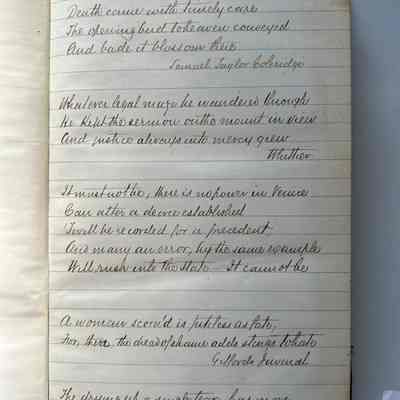 Death came with timely care
The opening bud to heaven conveyed
And bade it blossom there
Samuel Taylor Coleridge
Whatever legal maze he wandered through
He kept the sermon on the mount in view
And justice always into mercy grew
Whittier
It must not be, there is no power in Venice
Can alter a decree established
Twill be recorded for a precedent
And many an error, by the same example
Will rush into the State - It cannot be
A woman scorn'd is pitiless as fate,
For, there, the dread of shame adds stings to hate
Giffords Juvenal
The drying up a single tear has more